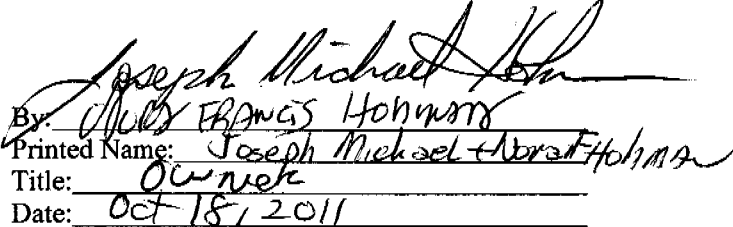 Joseph Michael Hohman
By: Nora FRANCIS HOHMAN
Printed Name: Joseph Michael + Nora F Hohman
Title: Owner
Date: Oct 18, 2011